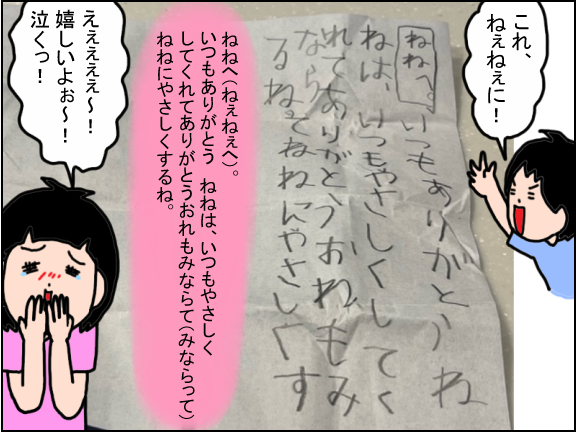 これ、
ねぇねぇに!
ねねへ、いつもありがとう ね
ねは、いつもやさしくしてく
れてありがとうおれもみ
ならてねねにやさしくす
るね
ねねへ(ねぇねぇへ)。
いつもありがとう ねねは、いつもやさしく
してくれてありがとうおれもみならて(みならって)
ねねにやさしくするね。
えぇぇぇぇ〜!
嬉しいよぉ〜!
泣くっ!